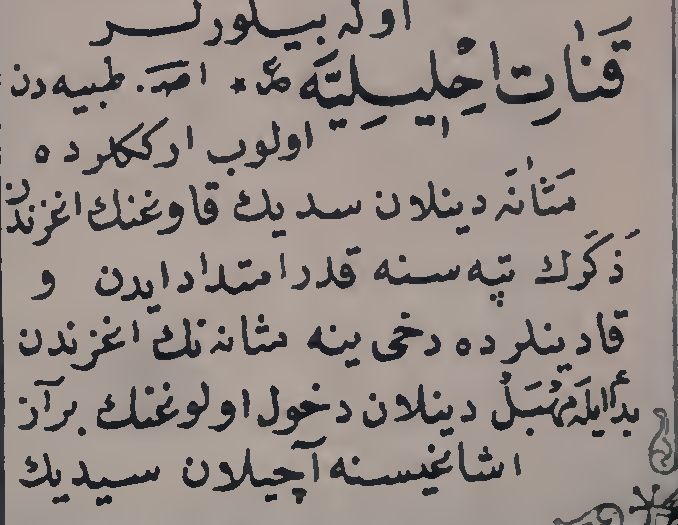 اوله بیلورلر
قَنَاتِ اِحْلِيلِيَّه ع اصط. طبیه دن
اولوب ارککلرده
مَثَانَه دینلان سدیك قاوغنك اغزندن
ذَكَرك تپه سنه قدر امتداد ایدن و
قادینلرده دخی ینه مثانه نك اغزندن
بدأ ایله مَهْبَل دینلان دخول اولوغنك براز
اشاغیسنه آچیلان سیدیك